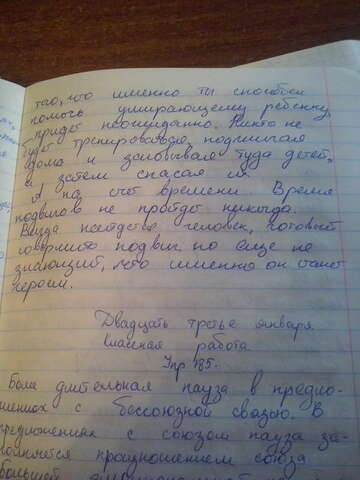 того, что именно ты способен
помочь умирающему ребенку,
придёт неожиданно. Никто не
будет тренироваться, поджигая
дома и заманивая туда детей,
а затем спасая их.
А на счёт времени. Время
подвигов не пройдёт никогда.
Всегда найдётся человек, готовый
совершить подвиг но еще не
знающий, что именно он станет
героем.
Двадцать третье января
Классная работа
Упр 185.
Более длительная пауза в предло-
жениях с бессоюзной связью. В
предложениях с союзом пауза за-
полняется произношением союза
большей